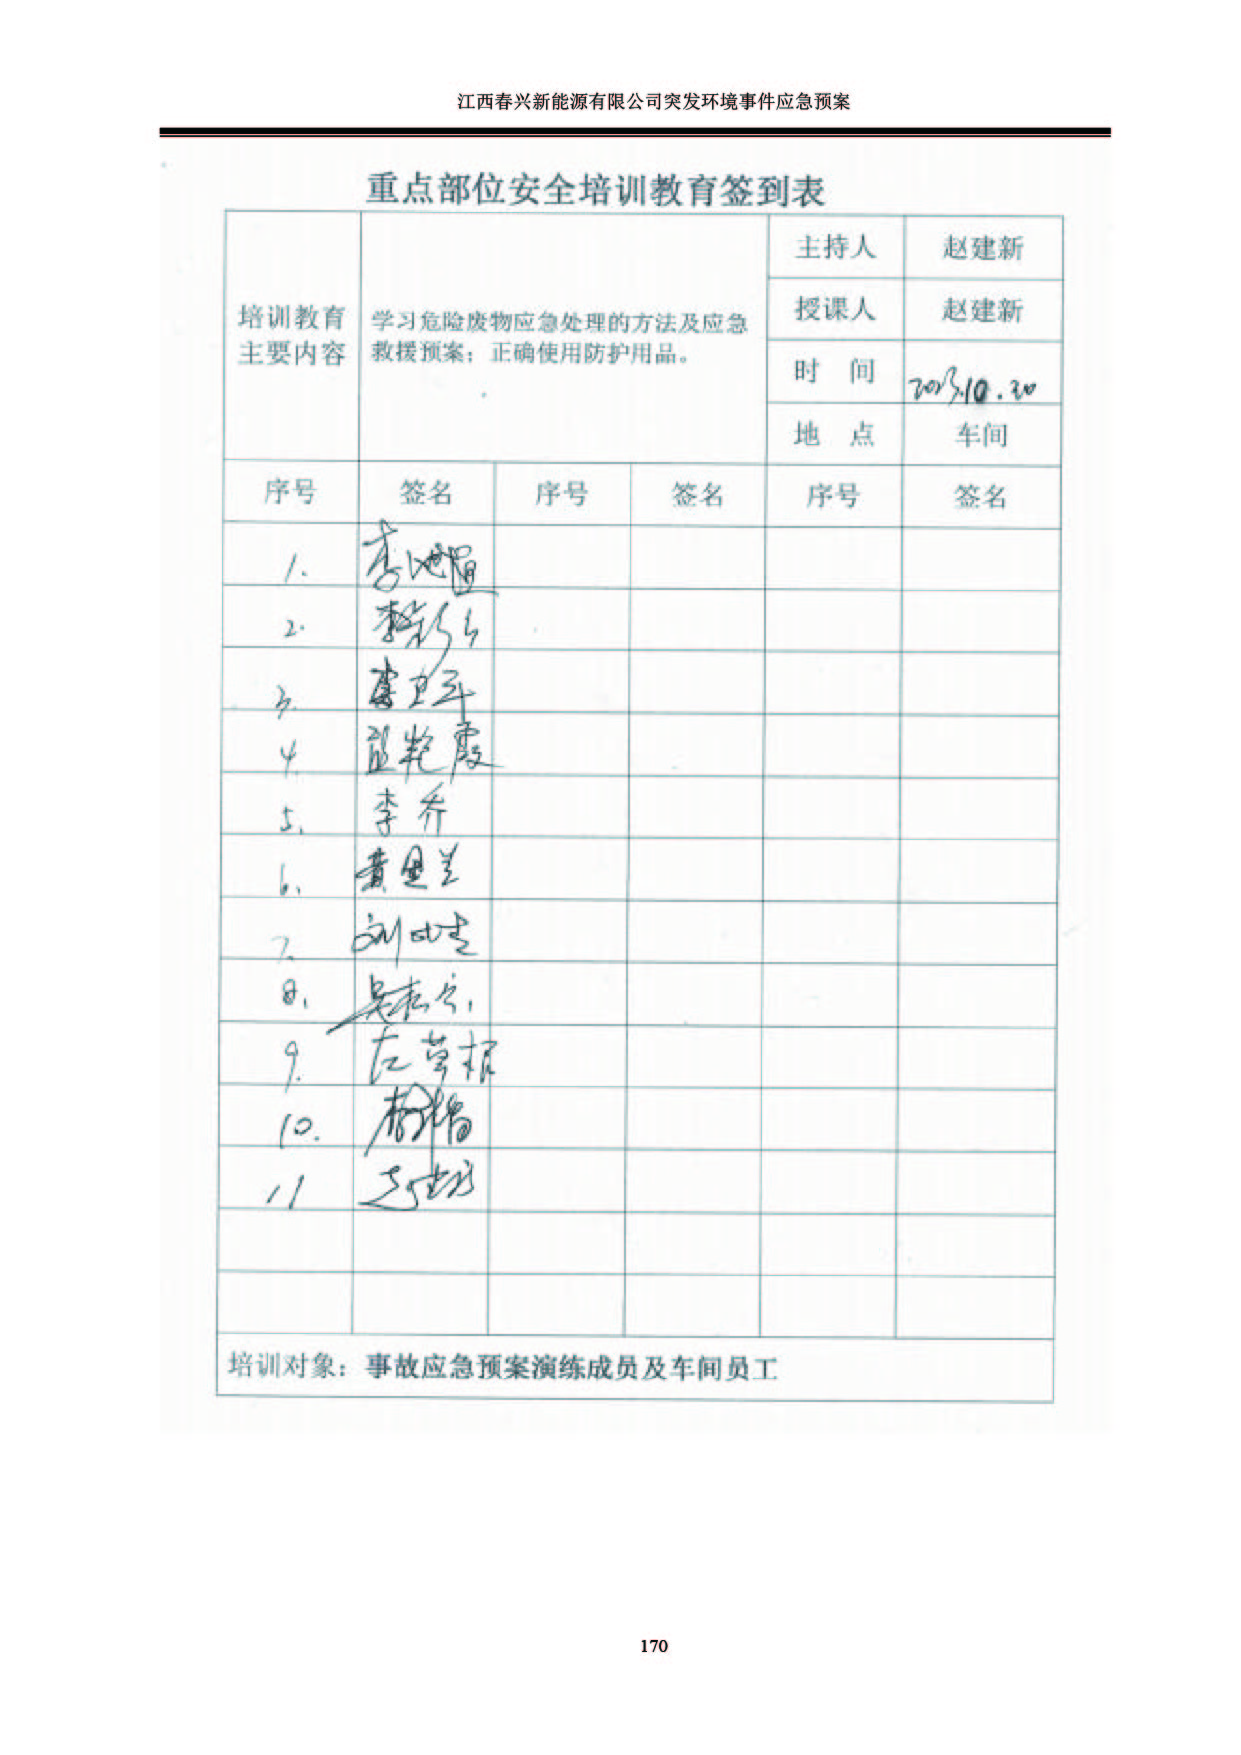 江西春兴新能源有限公司突发环境事件应急预案
重点部位安全培训教育签到表
培训教育
主要内容
学习危险废物应急处理的方法及应急
救援预案；正确使用防护用品。
主持人 赵建新
授课人 赵建新
时 间 2023.10.20
地 点 车间
序号 签名 序号 签名 序号 签名
1.
2.
3. 李卫平
4. 蓝艳霞
5. 李乔
6.
7.
8.
9.
10.
11 赵建新
培训对象：事故应急预案演练成员及车间员工
170